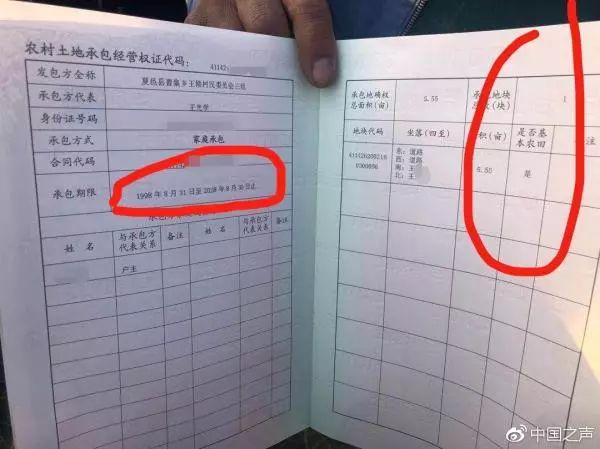 农村土地承包经营权证代码：41142
发包方全称 夏邑县曹集乡王楼村民委员会三组
承包方代表
身份证号码
承包方式 家庭承包
合同代码
承包期限 1998年8月31日至2028年8月30日止
姓 名 与承包方代表关系 备注 姓 名 与承包方代表关系 备注
户主
承包地确权总面积(亩) 5.55 1
地块代码 坐落(四至) 积(亩) 是否基本农田
东：道路
西：道路
南：王
北：王
5.55 是
中国之声